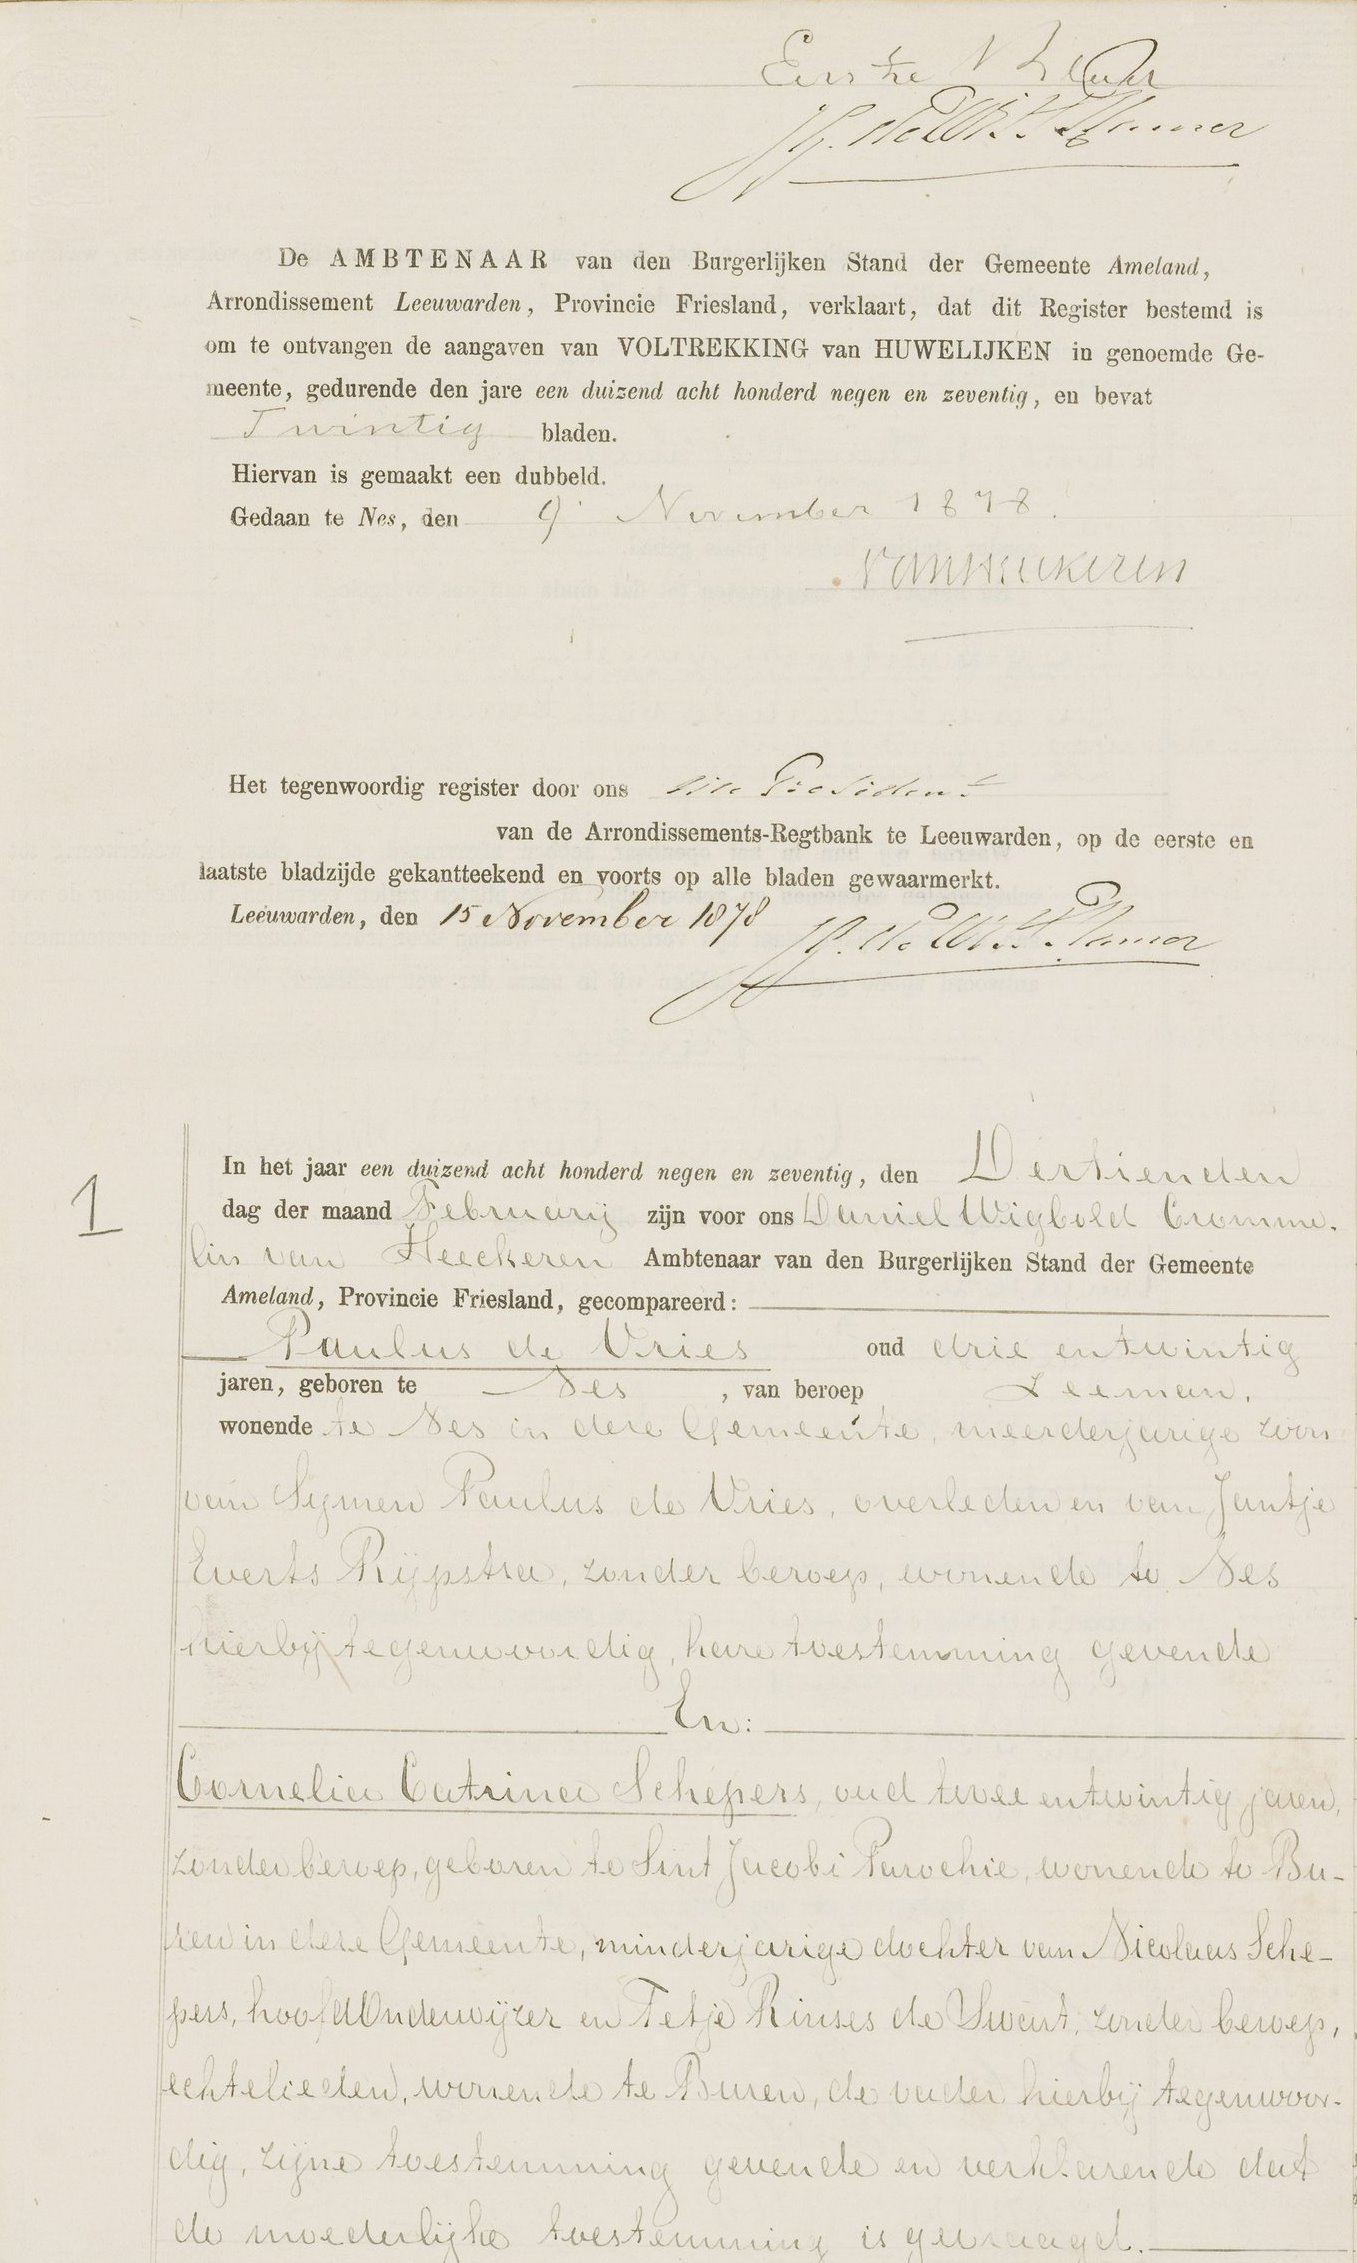 Eerste Blad
De AMBTENAAR van den Burgerlijken Stand der Gemeente Ameland,
Arrondissement Leeuwarden, Provincie Friesland, verklaart, dat dit Register bestemd is
om te ontvangen de aangaven van VOLTREKKING van HUWELIJKEN in genoemde Ge-
meente, gedurende den jare een duizend acht honderd negen en zeventig, en bevat
Twintig bladen.
Hiervan is gemaakt een dubbeld.
Gedaan te Nes, den 9 November 1878.
van Heeckeren
Het tegenwoordig register door ons den President
van de Arrondissements-Regtbank te Leeuwarden, op de eerste en
laatste bladzijde gekantteekend en voorts op alle bladen gewaarmerkt.
Leeuwarden, den 15 November 1878
1
In het jaar een duizend acht honderd negen en zeventig, den Dertienden
dag der maand Februarij zijn voor ons Daniel Wigbold Cromme-
lin van Heeckeren Ambtenaar van den Burgerlijken Stand der Gemeente
Ameland, Provincie Friesland, gecompareerd:
Paulus de Vries oud drie en twintig
jaren, geboren te Nes, van beroep Zeeman,
wonende te Nes in deze Gemeente, meerderjarige zoon
van Symen Paulus de Vries, overleden en van Jantje
Everts Rijpstra, zonder beroep, wonende te Nes
hierbij tegenwoordig, hare toestemming gevende
En:
Cornelia Catrina Schepers, oud twee en twintig jaren,
zonder beroep, geboren te Sint Jacobi Parochie, wonende te Bu-
ren in deze Gemeente, minderjarige dochter van Nicolaas Sche-
pers, hoofdOnderwijzer en Tetje Rinses de Swart, zonder beroep,
echtelieden, wonende te Buren, de vader hierbij tegenwoor-
dig, zijne toestemming gevende en verklarende dat
de moederlijke toestemming is gevraagd.